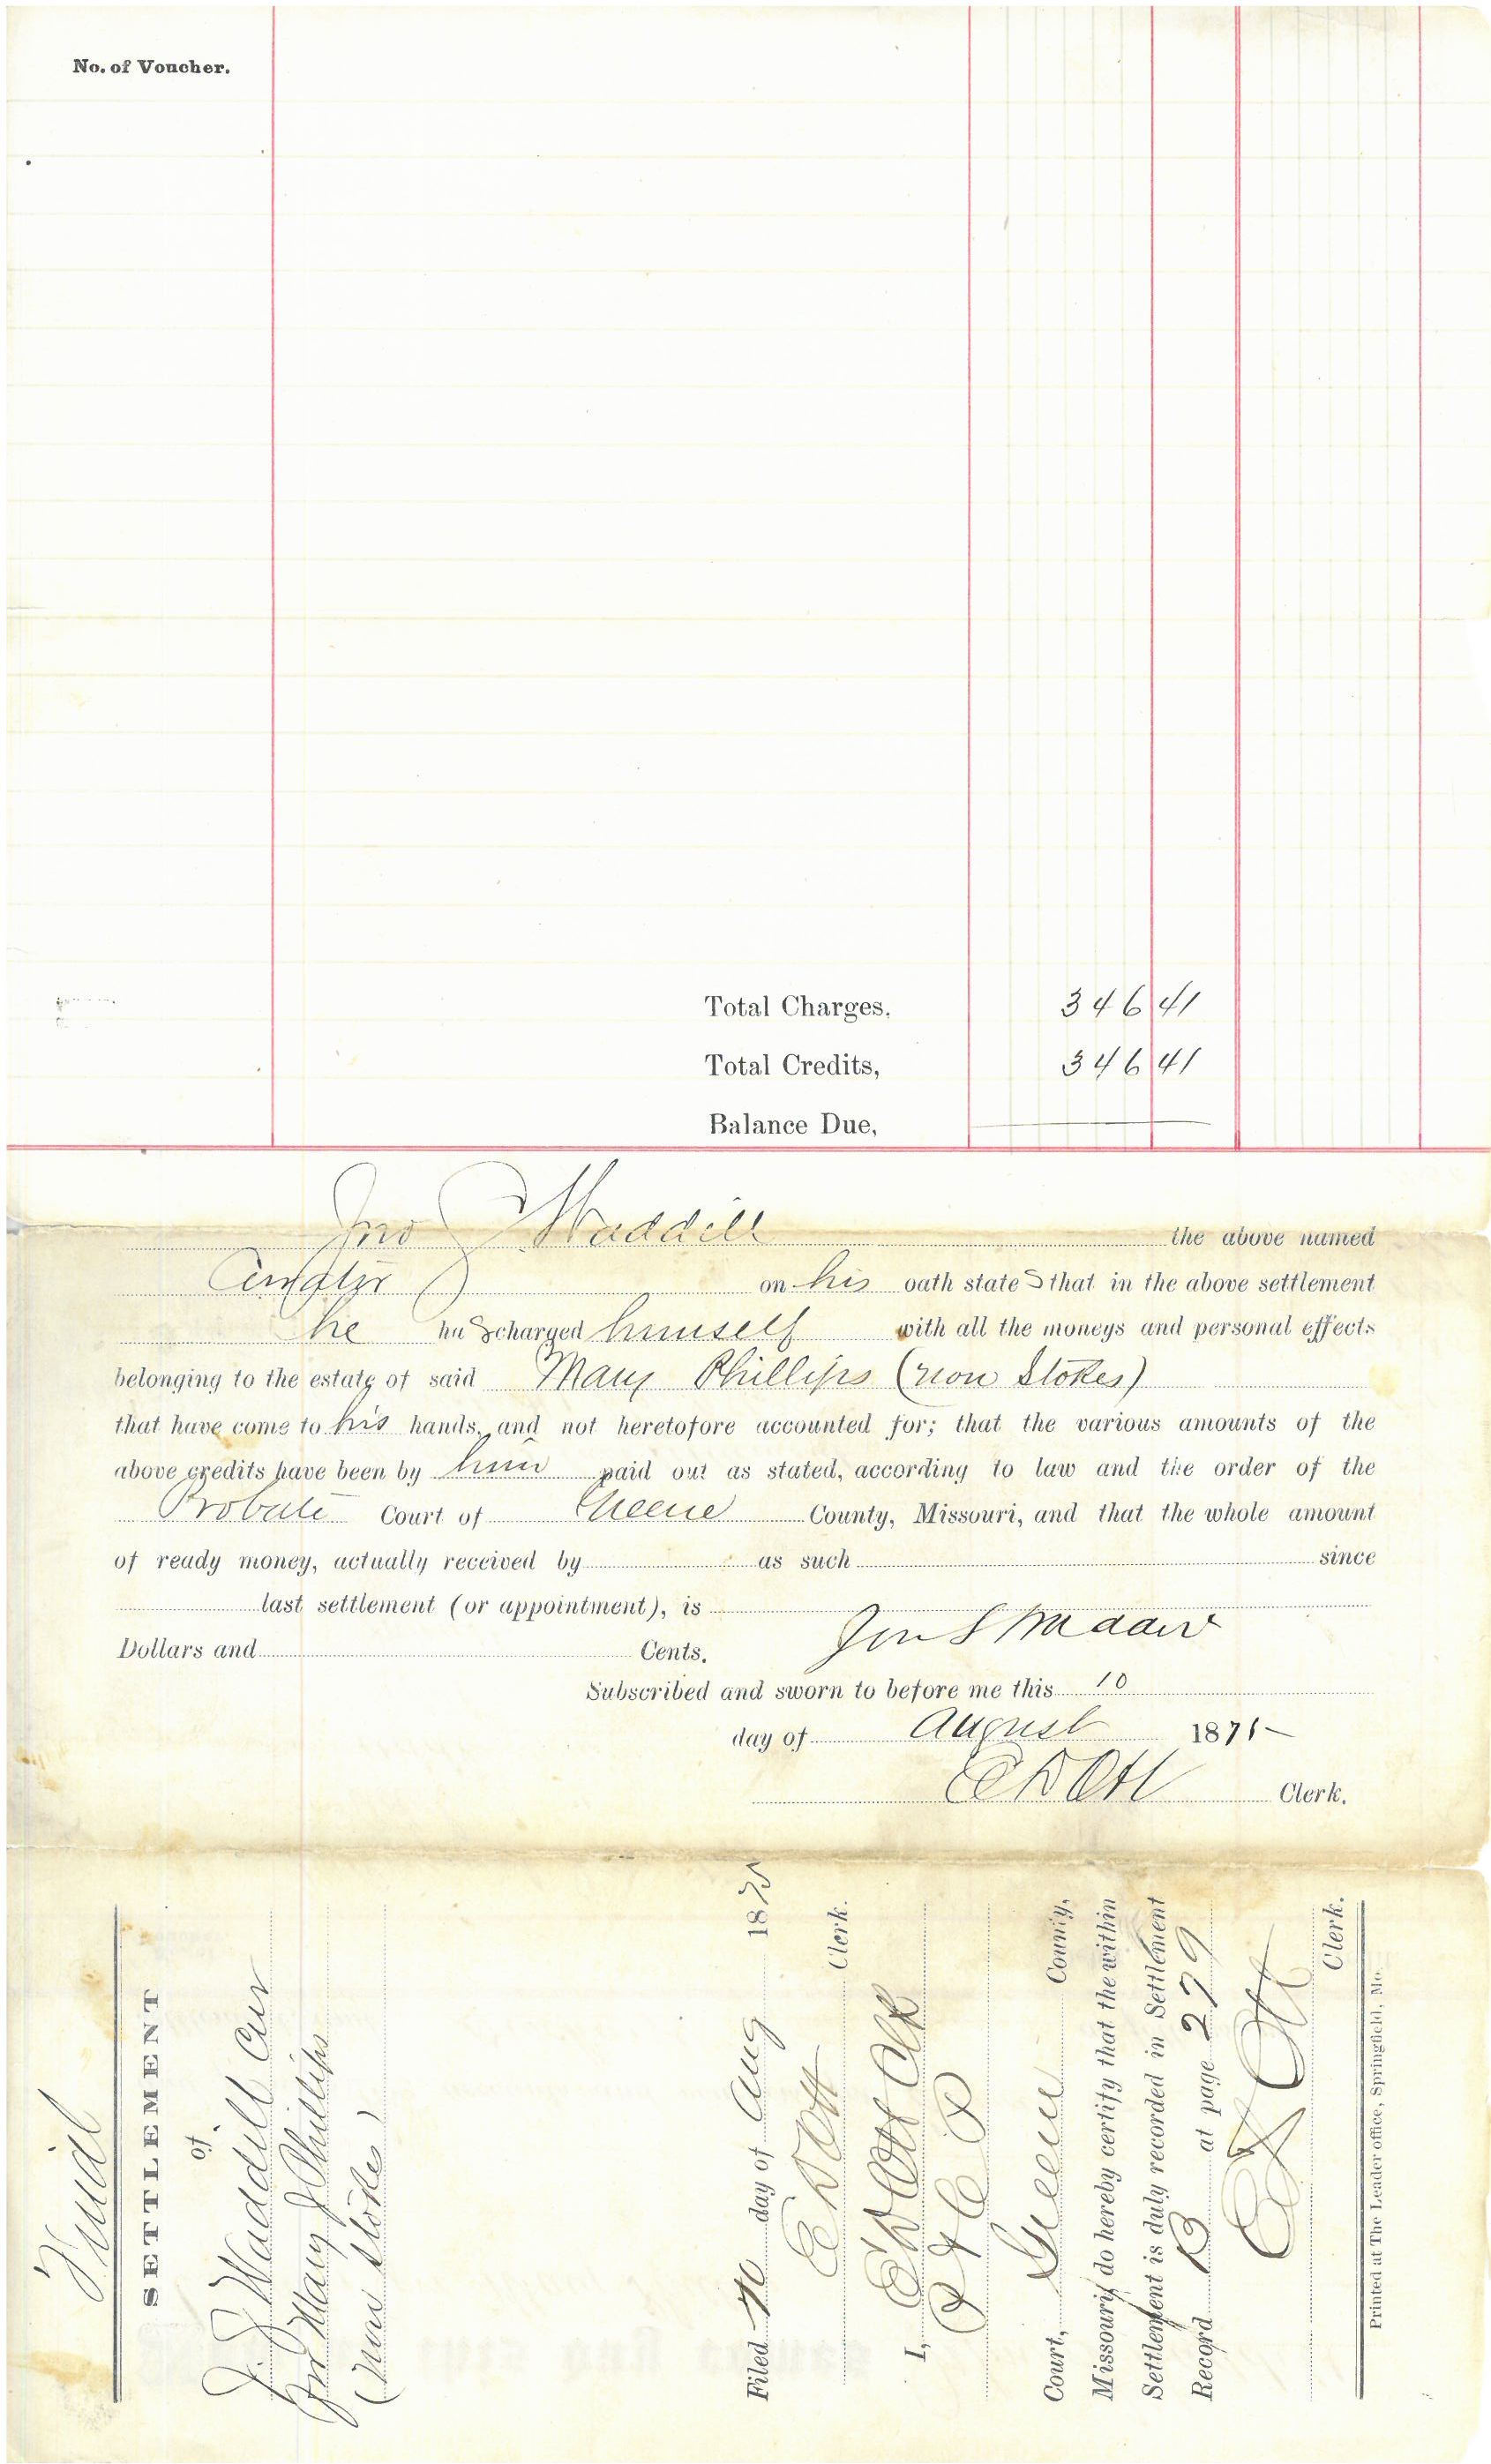 No. of Voucher.
Total Charges, 346 41
Total Credits, 346 41
Balance Due,
Jno S Waddill the above named
on his oath states that in the above settlement
he has charged himself with all the moneys and personal effects
belonging to the estate of said Mary Phillips (now Stokes)
that have come to his hands, and not heretofore accounted for; that the various amounts of the
above credits have been by him paid out as stated, according to law and the order of the
Probate Court of Greene County, Missouri, and that the whole amount
of ready money, actually received by as such since
last settlement (or appointment), is
Dollars and Cents.
Jno S Waddill
Subscribed and sworn to before me this 10
day of August 1875
E D Ott Clerk.
Final
SETTLEMENT
of
J. S. Waddill Cur
for Mary J Phillips
(Now Stokes)
Filed 10 day of Aug 1875
E D Ott
Clerk.
I, E D Ott Clk
Court, Greene County,
Missouri, do hereby certify that the within
Settlement is duly recorded in Settlement
Record B at page 279
E D Ott
Clerk.
Printed at The Leader office, Springfield, Mo.